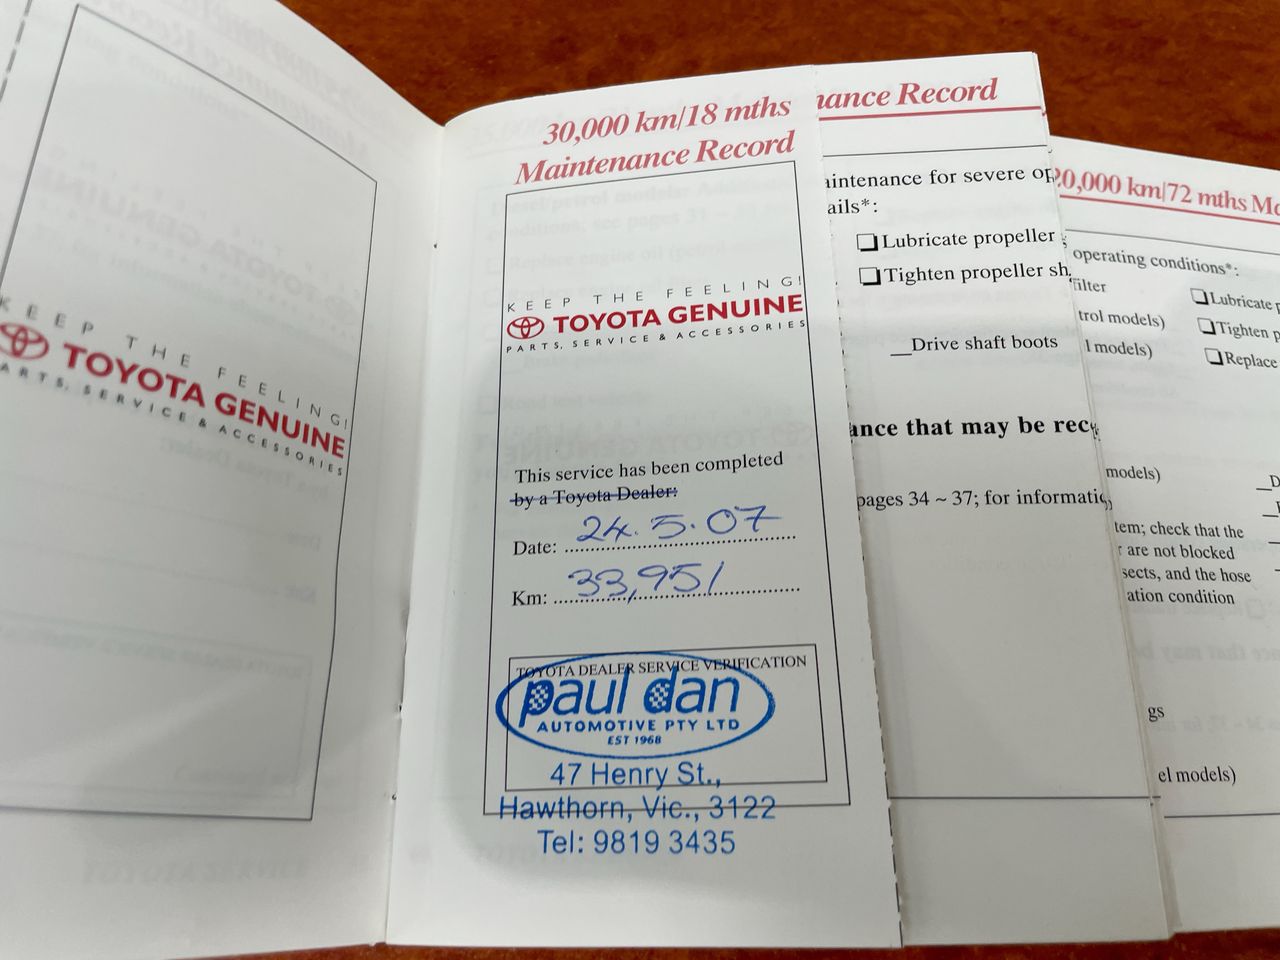 KEEP THE FEELING!
TOYOTA GENUINE
PARTS, SERVICE & ACCESSORIES
30,000 km/18 mths
Maintenance Record
KEEP THE FEELING!
TOYOTA GENUINE
PARTS, SERVICE & ACCESSORIES
This service has been completed
by a Toyota Dealer:
Date: 24.5.07
Km: 33,951
TOYOTA DEALER SERVICE VERIFICATION
paul dan
AUTOMOTIVE PTY LTD
EST 1968
47 Henry St.,
Hawthorn, Vic., 3122
Tel: 9819 3435
nance Record
aintenance for severe op
ails*:
Lubricate propeller s
Tighten propeller sh
Drive shaft boots
ance that may be rec
pages 34 ~ 37; for informatio
20,000 km/72 mths Ma
operating conditions*:
filter
trol models)
l models)
Lubricate p
Tighten p
Replace
models)
tem; check that the
r are not blocked
sects, and the hose
ation condition
gs
el models)